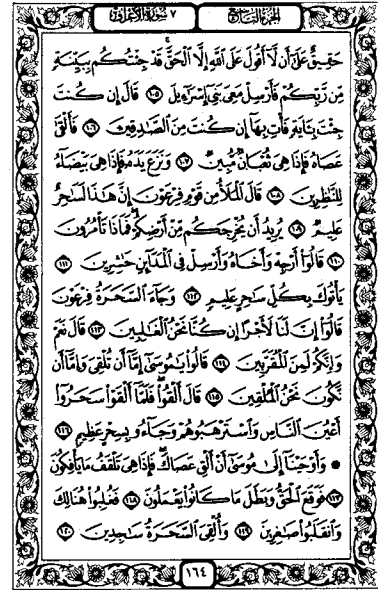 الجزء التاسع ٧ سورة الأعراف
حَقِيقٌ عَلَىٰٓ أَن لَّآ أَقُولَ عَلَى ٱللَّهِ إِلَّا ٱلْحَقَّ قَدْ جِئْتُكُم بِبَيِّنَةٍ
مِّن رَّبِّكُمْ فَأَرْسِلْ مَعِىَ بَنِىٓ إِسْرَٰٓءِيلَ ١٠٥ قَالَ إِن كُنتَ
جِئْتَ بِـَٔايَةٍ فَأْتِ بِهَآ إِن كُنتَ مِنَ ٱلصَّٰدِقِينَ ١٠٦ فَأَلْقَىٰ
عَصَاهُ فَإِذَا هِىَ ثُعْبَانٌ مُّبِينٌ ١٠٧ وَنَزَعَ يَدَهُۥ فَإِذَا هِىَ بَيْضَآءُ
لِلنَّٰظِرِينَ ١٠٨ قَالَ ٱلْمَلَأُ مِن قَوْمِ فِرْعَوْنَ إِنَّ هَٰذَا لَسَٰحِرٌ
عَلِيمٌ ١٠٩ يُرِيدُ أَن يُخْرِجَكُم مِّنْ أَرْضِكُمْ فَمَاذَا تَأْمُرُونَ
١١٠ قَالُوٓا۟ أَرْجِهْ وَأَخَاهُ وَأَرْسِلْ فِى ٱلْمَدَآئِنِ حَٰشِرِينَ ١١١
يَأْتُوكَ بِكُلِّ سَٰحِرٍ عَلِيمٍ ١١٢ وَجَآءَ ٱلسَّحَرَةُ فِرْعَوْنَ
قَالُوٓا۟ إِنَّ لَنَا لَأَجْرًا إِن كُنَّا نَحْنُ ٱلْغَٰلِبِينَ ١١٣ قَالَ نَعَمْ
وَإِنَّكُمْ لَمِنَ ٱلْمُقَرَّبِينَ ١١٤ قَالُوا۟ يَٰمُوسَىٰٓ إِمَّآ أَن تُلْقِىَ وَإِمَّآ أَن
نَّكُونَ نَحْنُ ٱلْمُلْقِينَ ١١٥ قَالَ أَلْقُوا۟ فَلَمَّآ أَلْقَوْا۟ سَحَرُوٓا۟
أَعْيُنَ ٱلنَّاسِ وَٱسْتَرْهَبُوهُمْ وَجَآءُو بِسِحْرٍ عَظِيمٍ ١١٦
وَأَوْحَيْنَآ إِلَىٰ مُوسَىٰٓ أَنْ أَلْقِ عَصَاكَ فَإِذَا هِىَ تَلْقَفُ مَا يَأْفِكُونَ
١١٧ فَوَقَعَ ٱلْحَقُّ وَبَطَلَ مَا كَانُوا۟ يَعْمَلُونَ ١١٨ فَغُلِبُوا۟ هُنَالِكَ
وَٱنقَلَبُوا۟ صَٰغِرِينَ ١١٩ وَأُلْقِىَ ٱلسَّحَرَةُ سَٰجِدِينَ ١٢٠
١٦٤